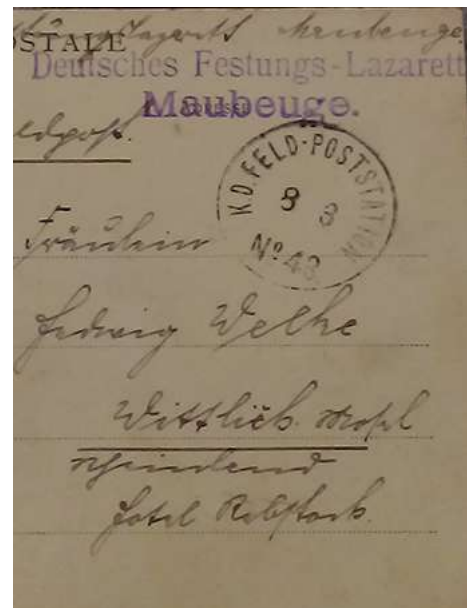 Lazarett Maubeuge
OSTALE
Deutsches Festungs-Lazarett
Maubeuge.
ADRESSE
eldpost.
K.D. FELD-POSTSTATION
8 3
No 48
Fräulein
Hedwig Welke
Wittlich. Mosel
Hotel Rebstock.